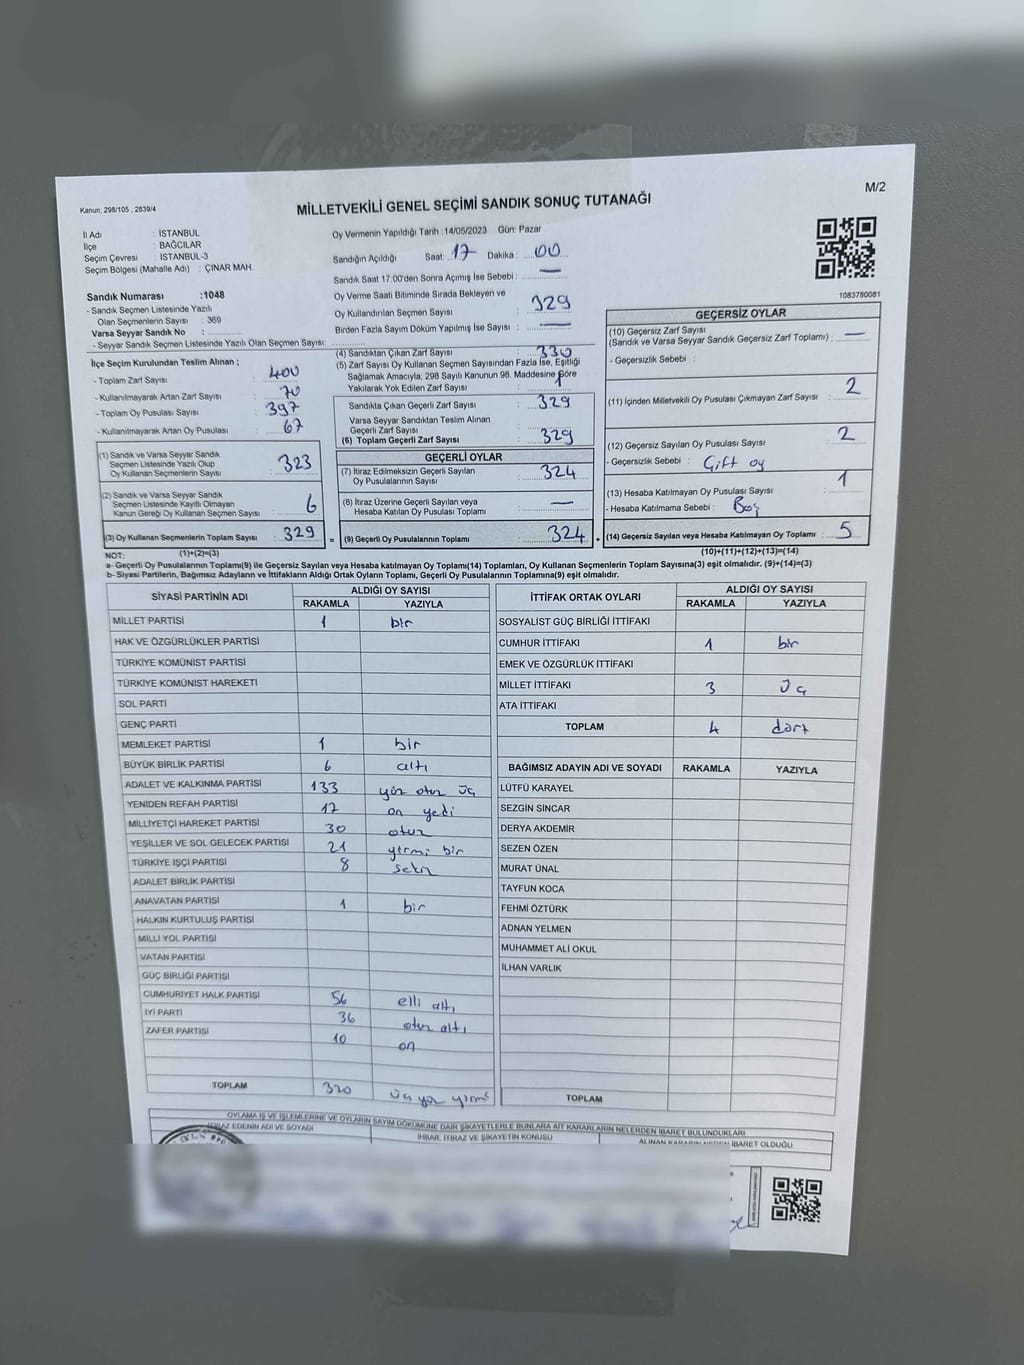 M/2
Kanun; 298/105 , 2839/4
MİLLETVEKİLİ GENEL SEÇİMİ SANDIK SONUÇ TUTANAĞI
İl Adı : İSTANBUL
İlçe : BAĞCILAR
Seçim Çevresi : İSTANBUL-3
Seçim Bölgesi (Mahalle Adı) : ÇINAR MAH.
Sandık Numarası :1048
- Sandık Seçmen Listesinde Yazılı
Olan Seçmenlerin Sayısı : 369
Varsa Seyyar Sandık No :
- Seyyar Sandık Seçmen Listesinde Yazılı Olan Seçmen Sayısı:
Oy Vermenin Yapıldığı Tarih :14/05/2023 Gün: Pazar
Sandığın Açıldığı Saat: 17 Dakika : 00
Sandık Saat 17.00'den Sonra Açımış İse Sebebi : —
Oy Verme Saati Bitiminde Sırada Bekleyen ve
Oy Kullandırılan Seçmen Sayısı : 329
Birden Fazla Sayım Döküm Yapılmış İse Sayısı : —
1083780081
İlçe Seçim Kurulundan Teslim Alınan ;
- Toplam Zarf Sayısı : 400
- Kullanılmayarak Artan Zarf Sayısı : 70
- Toplam Oy Pusulası Sayısı : 397
- Kullanılmayarak Artan Oy Pusulası : 67
(1) Sandık ve Varsa Seyyar Sandık
Seçmen Listesinde Yazılı Olup
Oy Kullanan Seçmenlerin Sayısı : 323
(2) Sandık ve Varsa Seyyar Sandık
Seçmen Listesinde Kayıtlı Olmayan
Kanun Gereği Oy Kullanan Seçmen Sayısı : 6
(3) Oy Kullanan Seçmenlerin Toplam Sayısı : 329
(4) Sandıktan Çıkan Zarf Sayısı : 330
(5) Zarf Sayısı Oy Kullanan Seçmen Sayısından Fazla İse, Eşitliği
Sağlamak Amacıyla, 298 Sayılı Kanunun 98. Maddesine Göre
Yakılarak Yok Edilen Zarf Sayısı : 1
Sandıkta Çıkan Geçerli Zarf Sayısı : 329
Varsa Seyyar Sandıktan Teslim Alınan
Geçerli Zarf Sayısı :
(6) Toplam Geçerli Zarf Sayısı : 329
GEÇERLİ OYLAR
(7) İtiraz Edilmeksizin Geçerli Sayılan
Oy Pusulalarının Sayısı : 324
(8) İtiraz Üzerine Geçerli Sayılan veya
Hesaba Katılan Oy Pusulası Toplamı : —
= (9) Geçerli Oy Pusulalarının Toplamı : 324 +
GEÇERSİZ OYLAR
(10) Geçersiz Zarf Sayısı
(Sandık ve Varsa Seyyar Sandık Geçersiz Zarf Toplamı) : —
- Geçersizlik Sebebi :
(11) İçinden Milletvekili Oy Pusulası Çıkmayan Zarf Sayısı : 2
(12) Geçersiz Sayılan Oy Pusulası Sayısı : 2
- Geçersizlik Sebebi : Çift oy
(13) Hesaba Katılmayan Oy Pusulası Sayısı : 1
- Hesaba Katılmama Sebebi : Boş
(14) Geçersiz Sayılan veya Hesaba Katılmayan Oy Toplamı : 5
NOT: (1)+(2)=(3) (10)+(11)+(12)+(13)=(14)
a- Geçerli Oy Pusulalarının Toplamı(9) ile Geçersiz Sayılan veya Hesaba katılmayan Oy Toplamı(14) Toplamları, Oy Kullanan Seçmenlerin Toplam Sayısına(3) eşit olmalıdır. (9)+(14)=(3)
b- Siyasi Partilerin, Bağımsız Adayların ve İttifakların Aldığı Ortak Oyların Toplamı, Geçerli Oy Pusulalarının Toplamına(9) eşit olmalıdır.
SİYASİ PARTİNİN ADI ALDIĞI OY SAYISI
RAKAMLA YAZIYLA
MİLLET PARTİSİ 1 bir
HAK VE ÖZGÜRLÜKLER PARTİSİ
TÜRKİYE KOMÜNİST PARTİSİ
TÜRKİYE KOMÜNİST HAREKETİ
SOL PARTİ
GENÇ PARTİ
MEMLEKET PARTİSİ 1 bir
BÜYÜK BİRLİK PARTİSİ 6 altı
ADALET VE KALKINMA PARTİSİ 133 yüz otuz üç
YENİDEN REFAH PARTİSİ 17 on yedi
MİLLİYETÇİ HAREKET PARTİSİ 30 otuz
YEŞİLLER VE SOL GELECEK PARTİSİ 21 yirmi bir
TÜRKİYE İŞÇİ PARTİSİ 8 sekiz
ADALET BİRLİK PARTİSİ
ANAVATAN PARTİSİ 1 bir
HALKIN KURTULUŞ PARTİSİ
MİLLİ YOL PARTİSİ
VATAN PARTİSİ
GÜÇ BİRLİĞİ PARTİSİ
CUMHURİYET HALK PARTİSİ 56 elli altı
İYİ PARTİ 36 otuz altı
ZAFER PARTİSİ 10 on
TOPLAM 320 üç yüz yirmi
İTTİFAK ORTAK OYLARI ALDIĞI OY SAYISI
RAKAMLA YAZIYLA
SOSYALİST GÜÇ BİRLİĞİ İTTİFAKI
CUMHUR İTTİFAKI 1 bir
EMEK VE ÖZGÜRLÜK İTTİFAKI
MİLLET İTTİFAKI 3 üç
ATA İTTİFAKI
TOPLAM 4 dört
BAĞIMSIZ ADAYIN ADI VE SOYADI RAKAMLA YAZIYLA
LÜTFÜ KARAYEL
SEZGİN SİNCAR
DERYA AKDEMİR
SEZEN ÖZEN
MURAT ÜNAL
TAYFUN KOCA
FEHMİ ÖZTÜRK
ADNAN YELMEN
MUHAMMET ALİ OKUL
İLHAN VARLIK
TOPLAM
OYLAMA İŞ VE İŞLEMLERİNE VE OYLARIN SAYIM DÖKÜMÜNE DAİR ŞİKAYETLERLE BUNLARA AİT KARARLARIN NELERDEN İBARET BULUNDUKLARI
İTİRAZ EDENİN ADI VE SOYADI İHBAR, İTİRAZ VE ŞİKAYETİN KONUSU ALINAN KARARIN NEDEN İBARET OLDUĞU